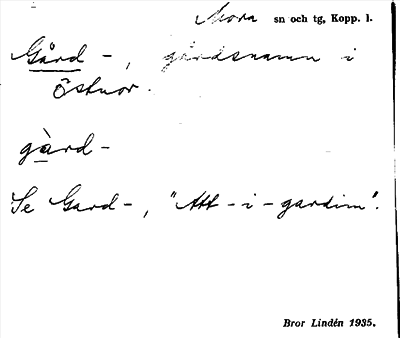 Mora sn och tg, Kopp. l.
Gård -, gårdsnamn i
Östnor.
gàrd -
Se Gard -, "Att - i - gardim".
Bror Lindén 1935.